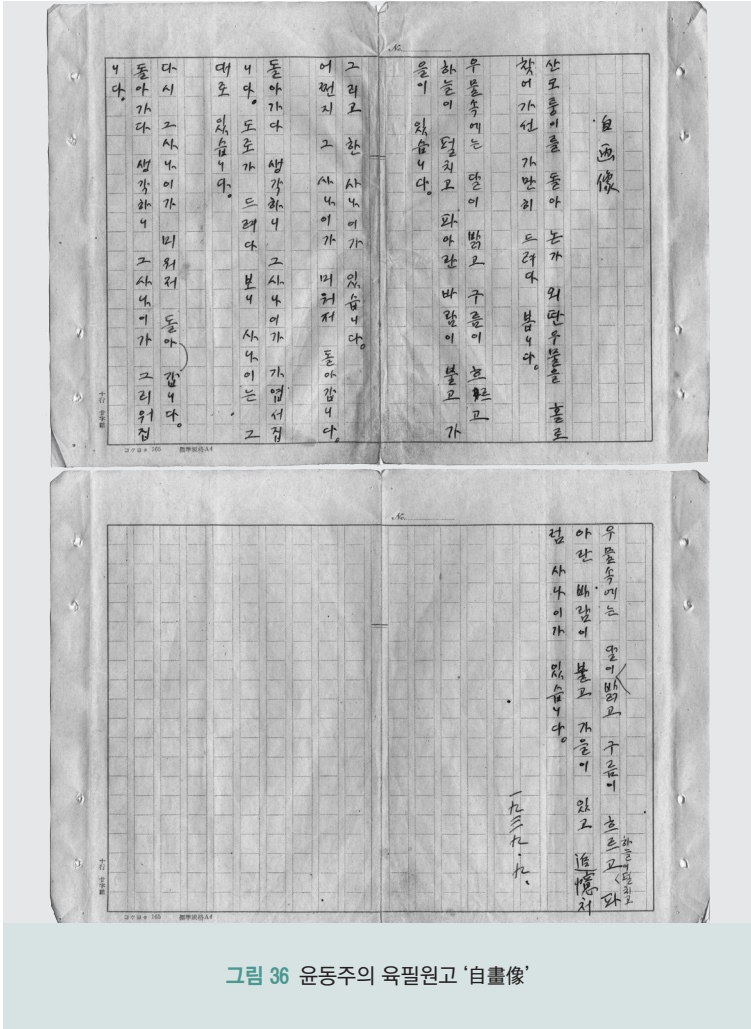 No.
自画像
산모퉁이를 돌아 논가 외딴우물을 홀로
찾어가선 가만히 드려다 봅니다.
우물속에는 달이 밝고 구름이 흐르고
하늘이 펄치고 파아란 바람이 불고 가
을이 있습니다.
그리고 한 사나이가 있습니다.
어쩐지 그 사나이가 미워저 돌아갑니다.
돌아가다 생각하니 그사나이가 가엽서집
니다. 도로가 드려다 보니 사나이는 그
대로 있습니다.
다시 그사나이가 미워저 돌아 갑니다.
돌아가다 생각하니 그사나이가 그리워집
니다.
165 標準規格A4
No.
우물속에는 달이 밝고 구름이 흐르고 파
하늘이펄치고
아란 바람이 불고 가을이 있고 追憶처
럼 사나이가 있습니다.
一九三九.九.
165 標準規格A4
그림 36 윤동주의 육필원고 ‘自畫像’